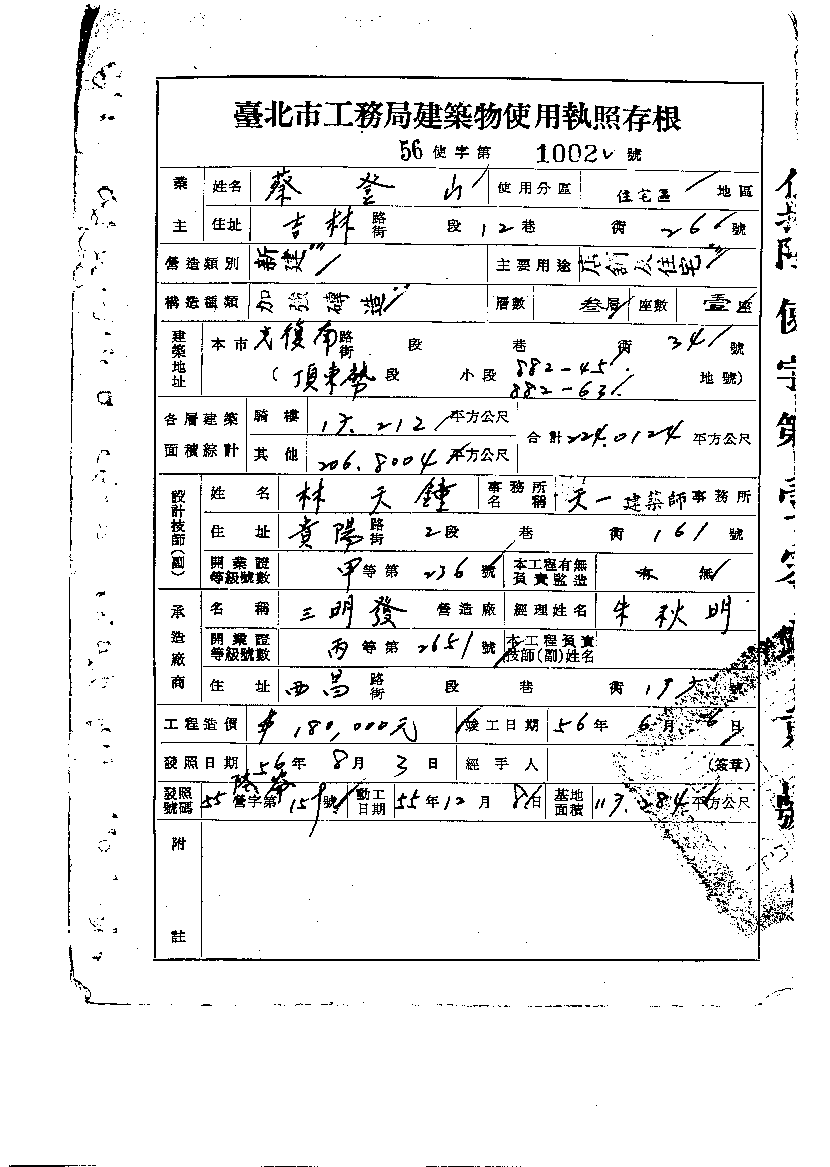 臺北市工務局建築物使用執照存根
56 使字第 1002 號
業主 姓名 蔡登山 使用分區 住宅區 地區
住址 吉林路街 段 12巷 街 266 號
營造類別 新建 主要用途 店舖及住宅
構造種類 加強磚造 層數 叁層 座數 壹座
建築地址 本市 光復南路街 段 巷 街 341 號
(頂東勢段 小段 882-45 882-63 地號)
各層建築面積綜計 騎樓 17.212 平方公尺 合計 224.0124 平方公尺
其他 206.8004 平方公尺
設計技師(副) 姓名 林天鍾 事務所名稱 天一建築師事務所
住址 貴陽路街 2段 巷 街 161 號
開業證等級號數 甲等第 236 號 本工程有無負責監造 有 無
承造廠商 名稱 三明發 營造廠 經理姓名 朱秋明
開業證等級號數 丙等第 2651 號 本工程負責技師(副)姓名
住址 西昌路街 段 巷 街 號
工程造價 180,000元 竣工日期 56年 6月 6日
發照日期 56年 8月 3日 經手人 (簽章)
發照號碼 55 營字第 號 動工日期 55年12月 8日 基地面積 117.284 平方公尺
附註